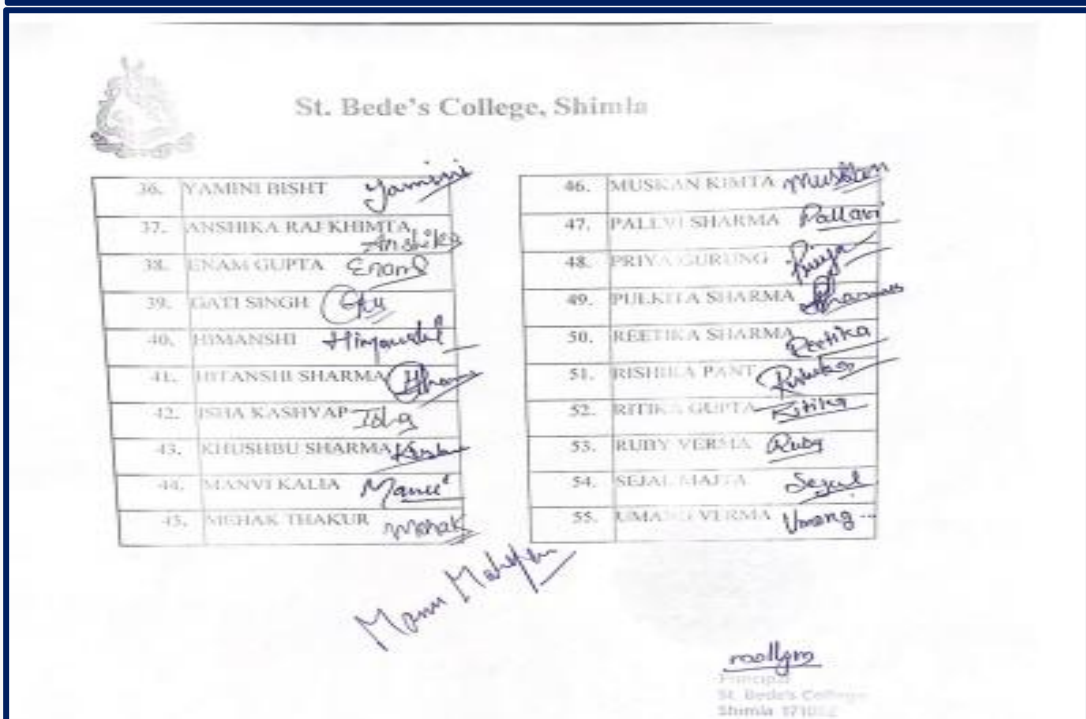 St. Bede's College, Shimla
36. YAMINI BISHT Yamini
37. ANSHIKA RAJ KHIMTA Anshika
38. ENAM GUPTA Enam
39. GATI SINGH
40. HIMANSHI Himanshi
41. HITANSHI SHARMA
42. ISHA KASHYAP Isha
43. KHUSHBU SHARMA
44. MANVI KALIA Manvi
45. MEHAK THAKUR Mehak
46. MUSKAN KIMTA Muskan
47. PALLVI SHARMA Pallavi
48. PRIYA GURUNG Priya
49. PULKITA SHARMA Sharma
50. REETIKA SHARMA Reetika
51. RISHIKA PANT Rishika
52. RITIKA GUPTA Ritika
53. RUBY VERMA Ruby
54. SEJAL MAJTA Sejal
55. UMANG VERMA Umang
Principal
St. Bede's College
Shimla 171002